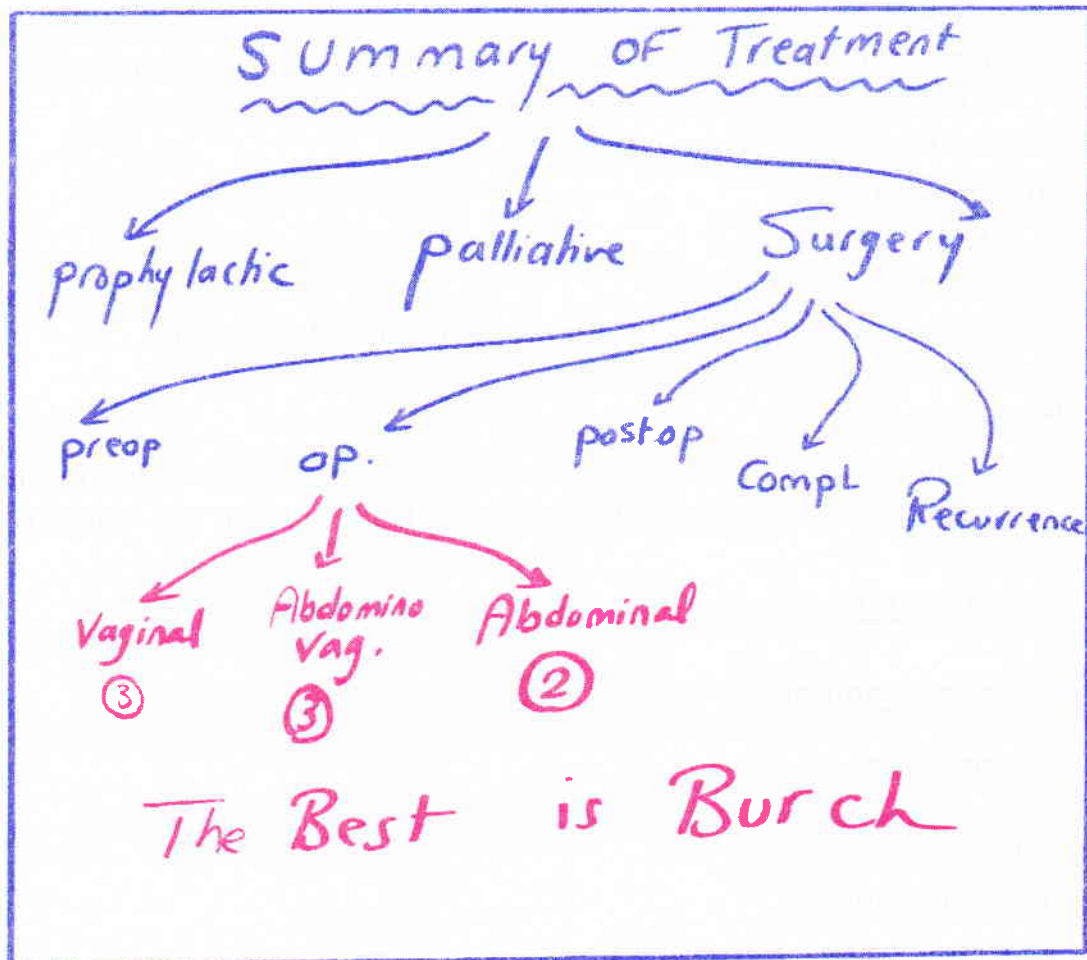 Summary of Treatment
prophylactic
palliative
Surgery
preop
op.
postop
Compl
Recurrence
Vaginal
③
Abdomino
vag.
③
Abdominal
②
The Best is Burch